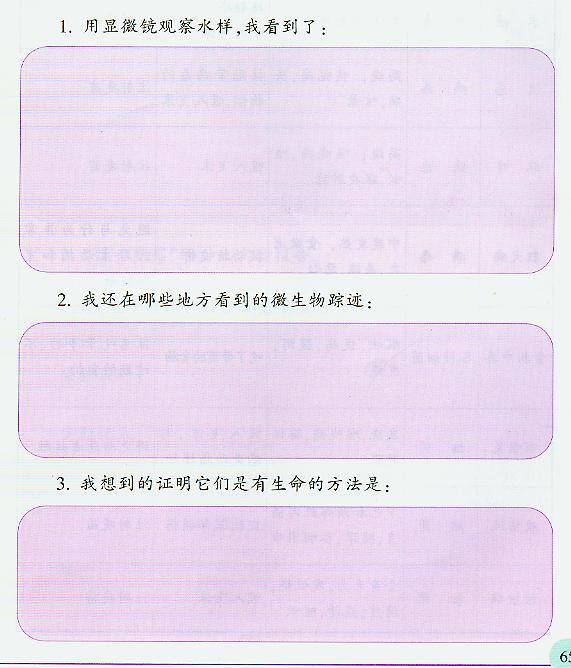 1. 用显微镜观察水样,我看到了:
2. 我还在哪些地方看到的微生物踪迹:
3. 我想到的证明它们是有生命的方法是: